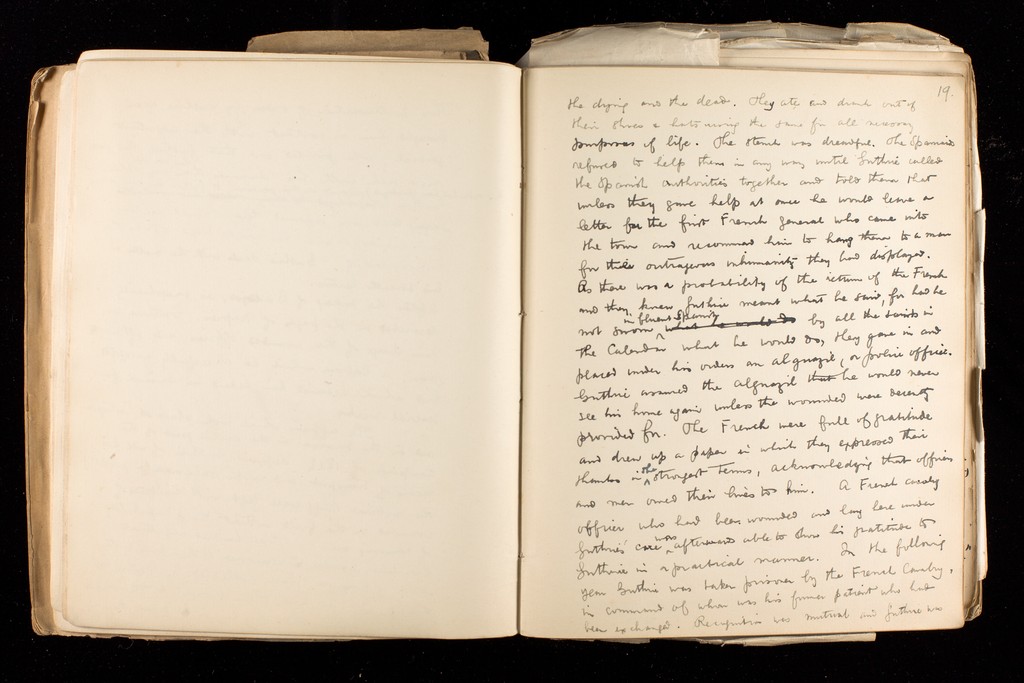 19.
the dying and the dead. They ate and drank out of
their shoes & hats using the same for all necessary
purposes of life. The stench was dreadful. The Spaniards
refused to help them in any way until Guthrie called
the Spanish authorities together and told them that
unless they gave help at once he would leave a
letter for the first French general who came into
the town and recommend him to hang them to a man
for their outrageous inhumanity they had displayed.
As there was a probability of the return of the French
and they knew Guthrie meant what he said, for had he
not sworn in fluent Spanish what he would do by all the saints in
the Calendar what he would do, they gave in and
placed under his orders an alguazil, or police officer.
Guthrie assured the alguazil that he would never
see his home again unless the wounded were decently
provided for. The French were full of gratitude
and drew up a paper in which they expressed their
thanks in the strongest terms, acknowledging that officers
and men owed their lives to him. A French cavalry
officer who had been wounded and long here under
Guthrie's care was afterwards able to show his gratitude to
Guthrie in a practical manner. In the following
year Guthrie was taken prisoner by the French Cavalry,
in command of whom was his former patient who had
been exchanged. Recognition was mutual and Guthrie was